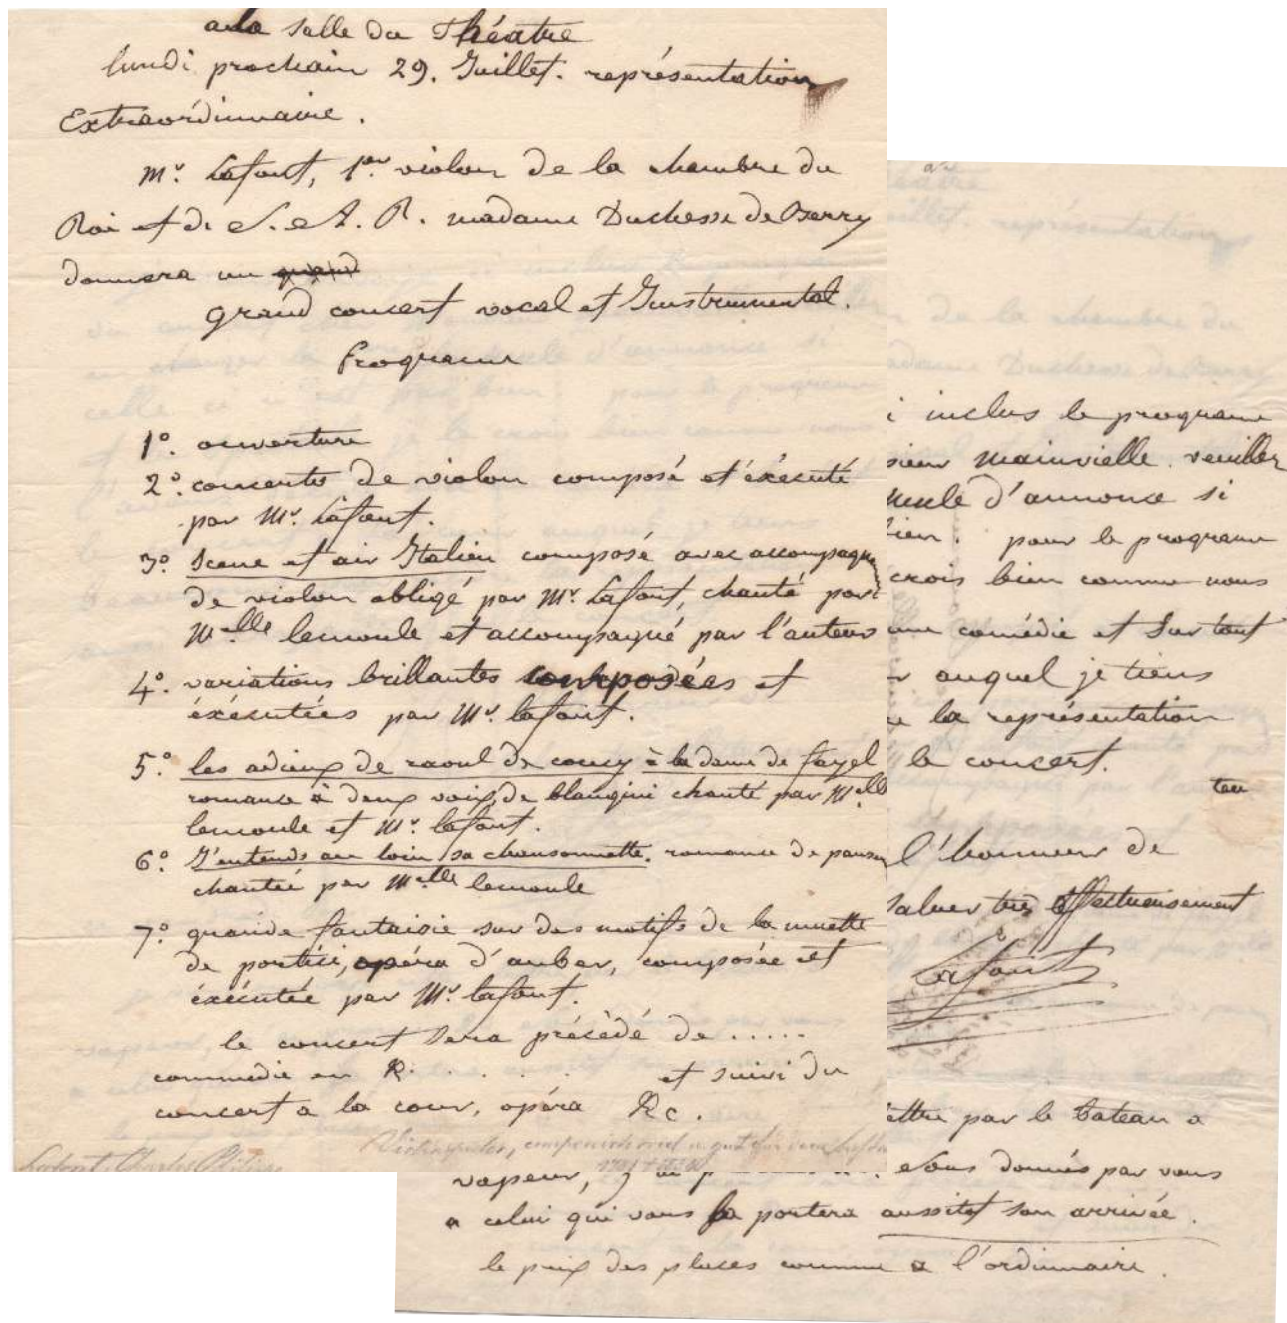 a la Salle du Théatre
lundi prochain 29. Juillet. représentation
Extraordinnaire.
Mr. Lafont, 1er. violon de la chambre du
Roi et de S. A. R. madame Duchesse de Berry
donnera un grand
grand concert vocal et Instrumental.
Programe
1º. ouverture
2º. concerto de violon composé et éxécuté
par Mr. Lafont.
3º. Scene et air Italien composé avec accompagn
de violon obligé par Mr. Lafont, chanté par
Melle lemoule et accompagné par l'auteur
4º. variations brillantes composées et
éxécutées par Mr. lafont.
5º. les adieux de raoul de coucy à la dame de fayel
romance à deux voix, de blangini chanté par Melle
lemoule et Mr. lafont.
6º. J'entends au loin sa chansonnette. romance de panseron
chantée par Melle lemoule
7º. grande fantaisie sur des motifs de la muette
de portici, opéra d'auber, composée et
éxécutée par Mr. lafont.
le concert sera précédé de .....
commedie en &. . . . . et suivi du
concert a la cour, opéra &c.
Lafont, Charles Philipp
i inclus le programe
sieur Mainvielle. veuillez
mule d'annonce si
bien. pour le programe
crois bien comme nous
une comédie et surtout
auquel je tiens
la représentation
le concert.
l'honneur de
saluer très affectueusement
Lafont
ettre par le bateau a
vapeur, donnés par vous
a celui qui vous la portera aussitot son arrivée.
le prix des places comme a l'ordinnaire.